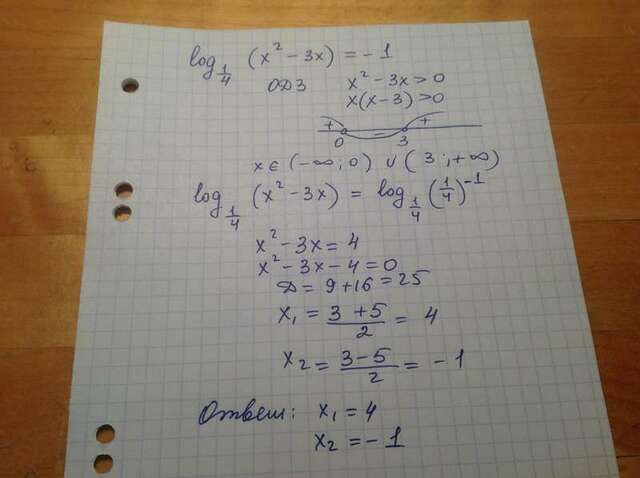 log 1/4 (x² - 3x) = - 1
ОДЗ x² - 3x > 0
x(x - 3) > 0
+ - +
0 3
x ∈ (-∞; 0) ∪ (3; +∞)
log 1/4 (x² - 3x) = log 1/4 (1/4)⁻¹
x² - 3x = 4
x² - 3x - 4 = 0
D = 9 + 16 = 25
x₁ = (3 + 5)/2 = 4
x₂ = (3 - 5)/2 = - 1
Ответ: x₁ = 4
x₂ = - 1